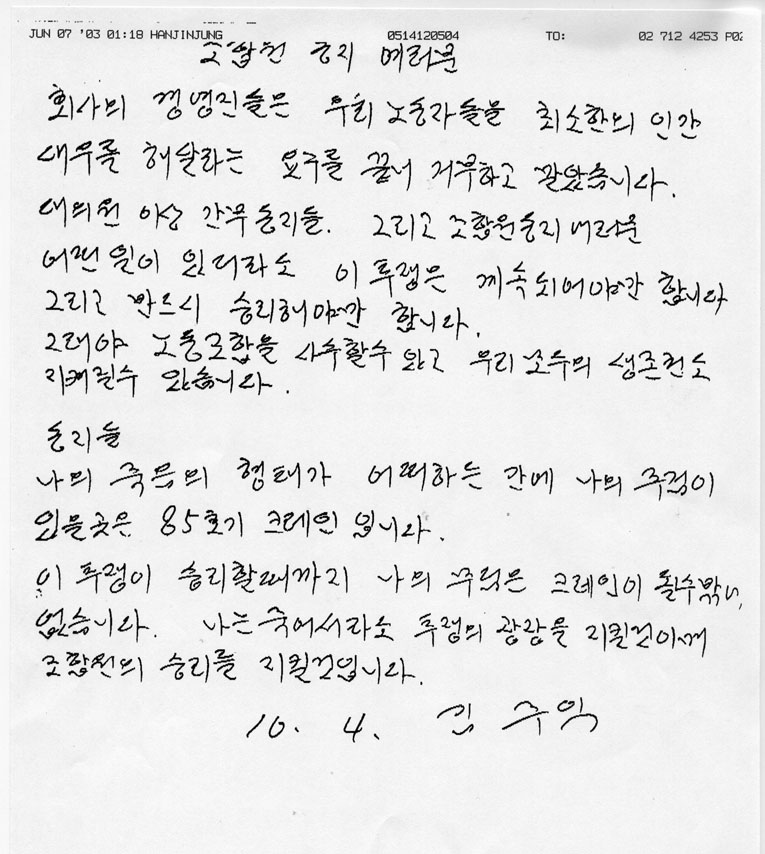 JUN 07 '03 01:18 HANJINJUNG 0514120504 TO: 02 712 4253 P02
조합원 동지 여러분
회사의 경영진들은 우리 노동자들을 최소한의 인간
대우를 해달라는 요구를 끝내 거부하고 말았습니다.
대의원 이상 간부 동지들. 그리고 조합원동지 여러분
어떤일이 있더라도 이 투쟁은 계속되어야만 합니다
그리고 반드시 승리해야만 합니다.
그래야 노동조합을 사수할수 있고 우리 모두의 생존권도
지켜질수 있습니다.
동지들
나의 죽음의 형태가 어떠하든 간에 나의 주검이
있을곳은 85호기 크레인 입니다.
이 투쟁이 승리할때까지 나의 무덤은 크레인이 될수밖에
없습니다. 나는 죽어서라도 투쟁의 광장을 지킬것이며
조합원의 승리를 지킬것입니다.
10. 4. 김 주익